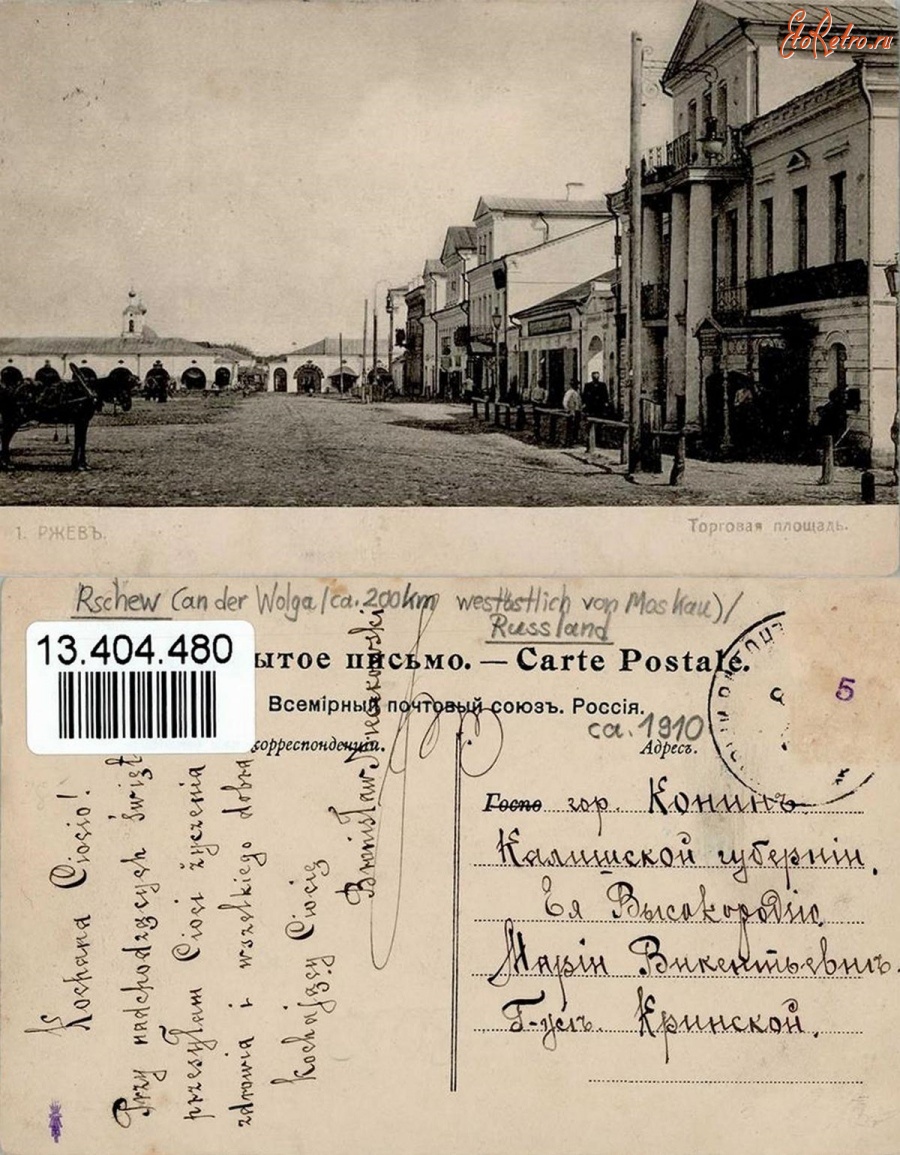 EtoRetro.ru
1. РЖЕВЪ.
Торговая площадь.
Rschew (an der Wolga/ca. 200km westöstlich von Moskau)/
Russland
13.404.480
ытое письмо. — Carte Postale.
Всемірный почтовый союзъ. Россія.
ca. 1910
орреспонденціи.
Адресъ.
5
Kochana Ciociu!
Przy nadchodzących Świąt
przesyłam Cioci życzenia
zdrowia i wszelkiego dobra
kochający Ciocię
Bronisław
Госпо гор. Конинъ
Калишской губерніи.
Ея Высокородію
Маріи Викентьевнѣ
Г-жѣ Кринской.